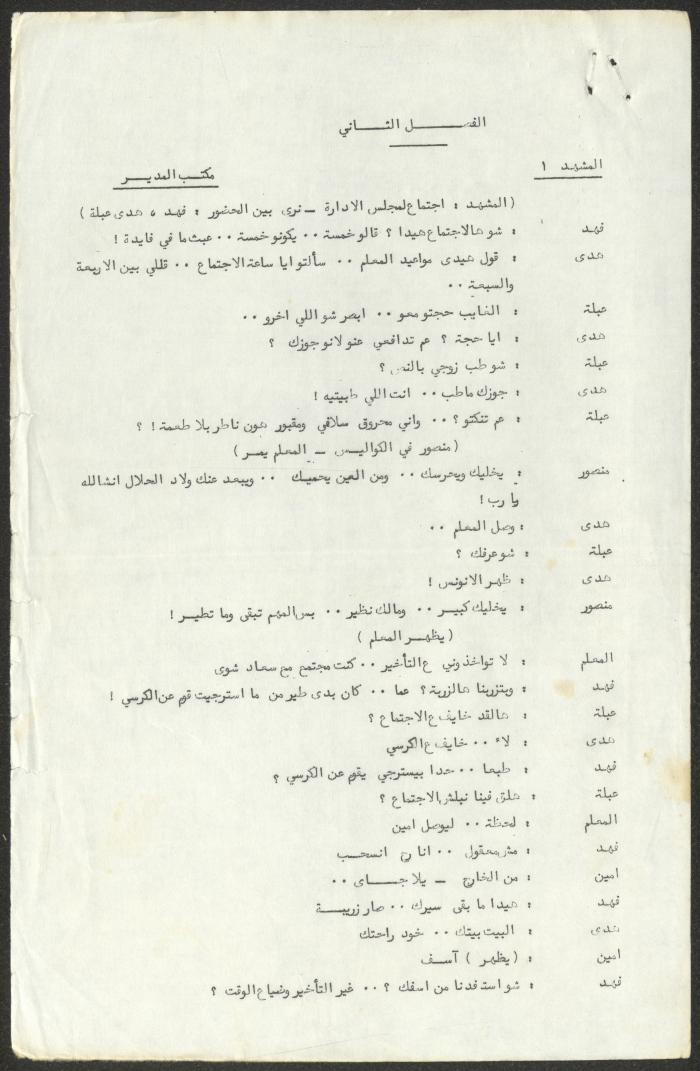 الفصل الثاني
المشهد ١
مكتب المدير
( المشهد : اجتماع لمجلس الادارة - نرى بين الحضور : فهد ، هدى عبلة )
فهد : شو هالاجتماع هيدا ؟ قالو خمسة ٠٠ يكونو خمسة ٠٠ عبث ما في فايدة !
هدى : قول هيدى مواعيد المعلم ٠٠ سألتو ايا ساعة الاجتماع ٠٠ قللي بين الاربعة
والسبعة ٠٠
عبلة : الغايب حجتو معو ٠٠ ابصر شو اللي اخرو ٠٠
هدى : ايا حجة ؟ عم تدافعي عنو لانو جوزك ؟
عبلة : شو طب زوجي بالنص ؟
هدى : جوزك ما طب ٠٠ انت اللي طبيتيه !
عبلة : عم تنكتو ؟ ٠٠ واني محروق سلافي ومقبور هون ناطر بلا طعمة ! ؟
( منصور في الكواليس - المعلم يمر )
منصور : يخليك ويحرسك ٠٠ ومن العين يحميك ٠٠ ويبعد عنك ولاد الحلال انشالله
يا رب !
هدى : وصل المعلم ٠٠
عبلة : شو عرفك ؟
هدى : ظهر الانونس !
منصور : يخليك كبير ٠٠ ومالك نظير ٠٠ بس المهم تبقى وما تطير !
( يظهر المعلم )
المعلم : لا تواخذوني ع التأخير ٠٠ كنت مجتمع مع سعاد شوى
فهد : وبتزربنا هالزربة ؟ عما ٠٠ كان بدى طير من ما استرجيت قوم عن الكرسي !
عبلة : هالقد خايف ع الاجتماع ؟
هدى : لاء ٠٠ خايف ع الكرسي
فهد : طبعا ٠٠ حدا بيسترجي يقوم عن الكرسي ؟
عبلة : هلق فينا نبلش الاجتماع ؟
المعلم : لحظة ٠٠ ليوصل امين
فهد : مش معقول ٠٠ انا رح انسحب
امين : من الخارج - يلا جاى ٠٠
فهد : هيدا ما بقى سيرك ٠٠ صار زريبة
هدى : البيت بيتك ٠٠ خود راحتك
امين : ( يظهر ) آسف
فهد : شو استفدنا من اسفك ؟ ٠٠ غير التأخير وضياع الوقت ؟